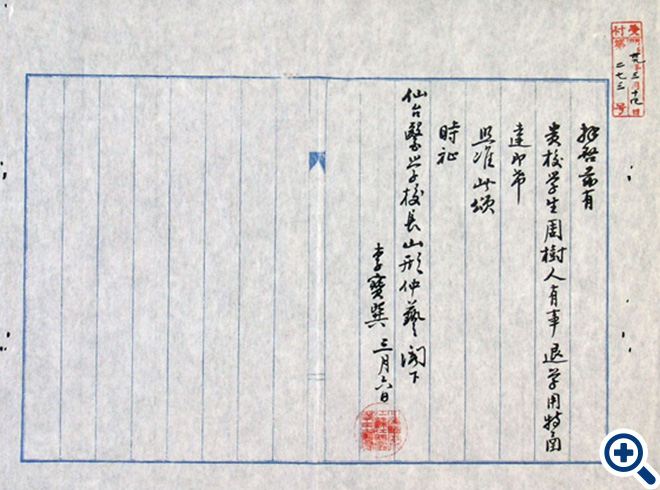 付第二七三号
拜啓茲有
貴校学生周樹人有事退学用特函
達即希
照准此頌
時祉
仙台醫学校長山形仲藝閣下
李寶巽 三月六日